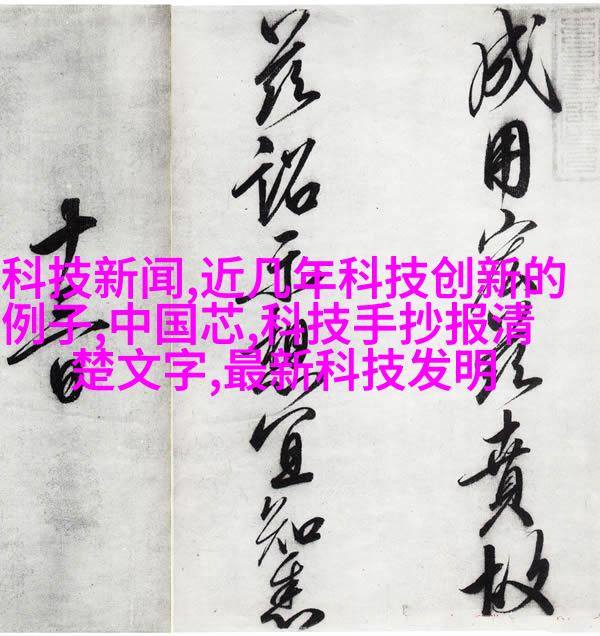 科技新闻,近几年科技创新的
例子,中国芯,科技手抄报清
楚文字,最新科技发明
成用賁故
兹詔示想宜知悉
十三日